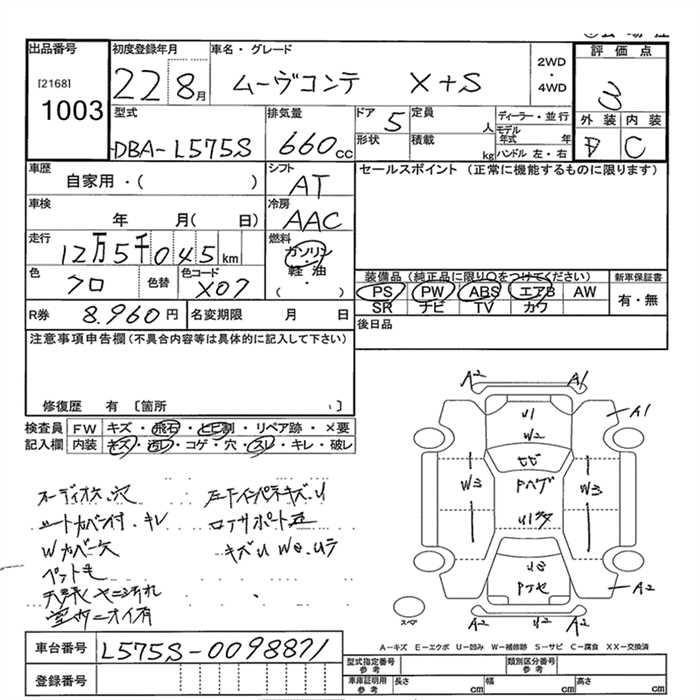 出品番号
[2168]
1003
初度登録年月
22 8月
車名・グレード
ムーヴコンテ X+S
2WD
・
4WD
評価点
3
外装 内装
C
型式
DBA-L575S
排気量
660cc
ドア 5
形状
定員 人
積載 kg
ディーラー・並行
モデル年式 年
ハンドル 左・右
車歴
自家用・( )
シフト
AT
セールスポイント (正常に機能するものに限ります)
車検
年 月( 日)
冷房
AAC
走行
12万5千045km
燃料
ガソリン
・
軽油
( )
色
クロ
色替
色コード
X07
装備品(純正品に限り○をつけてください)
PS PW ABS エアB AW
SR ナビ TV カワ
新車保証書
有・無
R券 8,960円
名変期限 月 日
後日品
注意事項申告欄(不具合内容等は具体的に記入して下さい)
修復歴 有 〔箇所 〕
検査員記入欄
FW キズ・飛石・ヒビ割・リペア跡・×要
内装 キズ・汚レ・コゲ・穴・スレ・キレ・破レ
オーディオ欠.穴
シートカバー付.キレ
Wカバー欠
ペット毛
天張 ヤニ汚れ
室内ニオイ有
左右インパネキズ.U
コアサポート
キズU
A2 A1
U1
W2
A1
ヒビ
W3 W3
U3
A2
A2 A2
スペア
A-キズ E-エクボ U-凹み W-補修跡 S-サビ C-腐食 XX-交換済
車台番号 L575S-0098871
登録番号
型式指定番号 参考
類別区分番号 参考
車庫証明用 参考
長さ cm
幅 cm
高さ cm